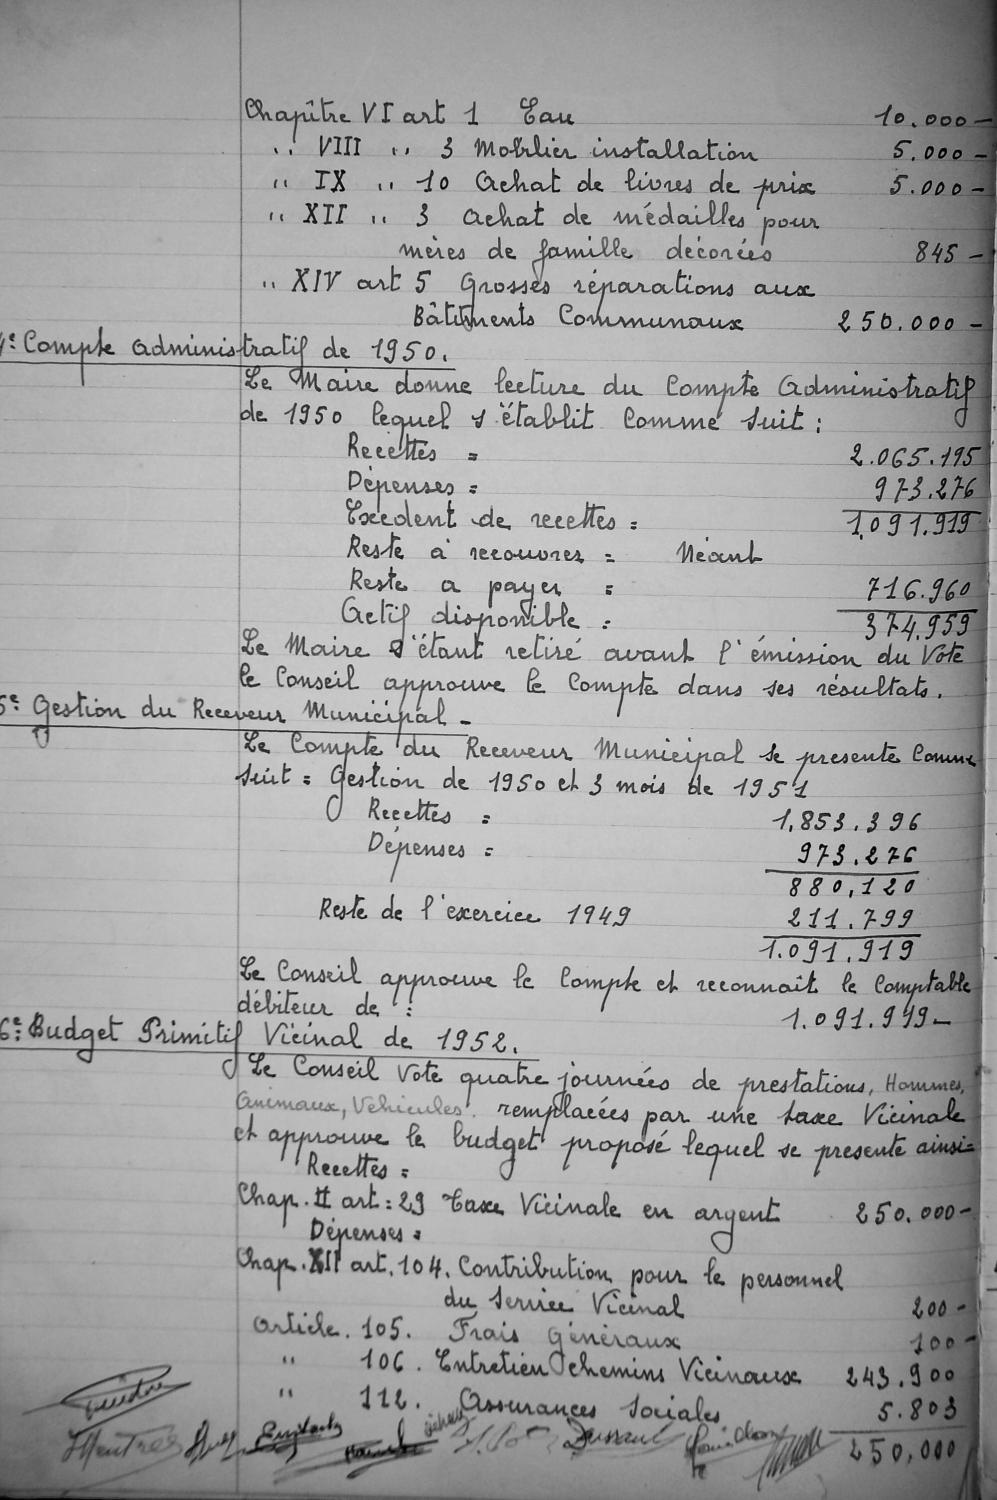 Chapître VI art 1 Eau 10.000 -
" VIII " 3 Mobilier installation 5.000 -
" IX " 10 Achat de livres de prix 5.000 -
" XII " 3 Achat de médailles pour
mères de famille décorées 845 -
" XIV art 5 Grosses réparations aux
Bâtiments Communaux 250.000 -
4e: Compte administratif de 1950.
Le Maire donne lecture du Compte Administratif
de 1950 lequel s'établit comme suit :
Recettes = 2.065.195
Dépenses = 973.276
Excedent de recettes = 1.091.919
Reste à recouvrer = Néant
Reste a payer = 716.960
Actif disponible : 374.959
Le Maire s'étant retiré avant l'émission du Vote
le Conseil approuve le Compte dans ses résultats.
5e: Gestion du Receveur Municipal -
Le Compte du Receveur Municipal se presente comme
suit = Gestion de 1950 et 3 mois de 1951
Recettes = 1,853.396
Dépenses = 973.276
880,120
Reste de l'exercice 1949 211.799
1.091.919
Le Conseil approuve le Compte et reconnait le Comptable
débiteur de : 1.091.919 -
6e: Budget Primitif Vicinal de 1952.
Le Conseil Vote quatre journées de prestations, Hommes,
Animaux, Vehicules. remplacées par une taxe Vicinale
et approuve le budget proposé lequel se presente ainsi =
Recettes =
Chap. II art: 29 Taxe Vicinale en argent 250.000 -
Dépenses =
Chap. XII art. 104. Contribution pour le personnel
du Service Vicinal 200 -
Article. 105. Frais Généraux 100 -
" 106. Entretien chemins Vicinaux 243.900
" 112. Assurances Sociales 5.803
250,000